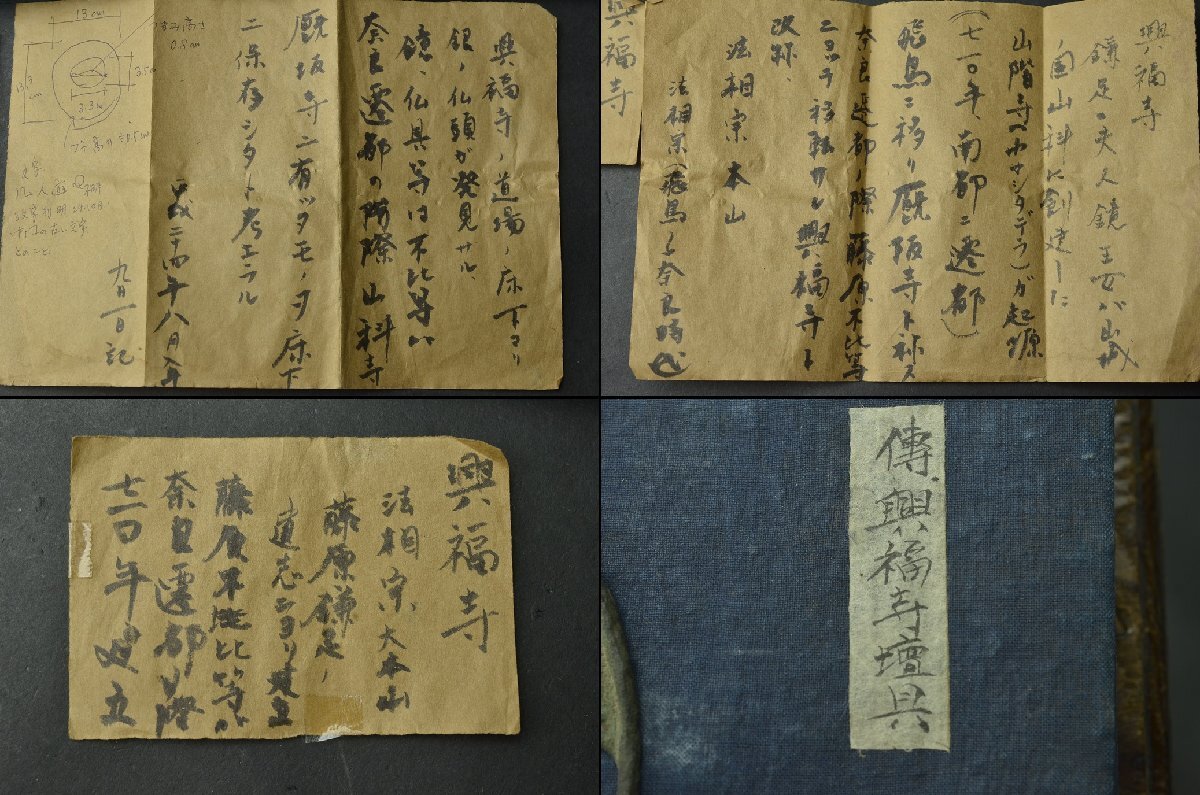 興福寺ノ道場ノ床下ヨリ
銀ノ仏頭が発見サル、
鏡、仏具等は不比等ハ
奈良遷都の際山科寺
厩坂寺ニ有ッタモノヲ床下
ニ保存シタト考エラル
二十四年八月入手
九月一日記
13cm
つまみ高さ
0.8cm
3.5cm
13cm
3.3cm
興福寺
興福寺
鎌足ノ夫人鏡王女が山城
国山科に創建した
山階寺(ヤマシナデラ)が起源
(七一〇年、南都ニ遷都)
飛鳥ニ移り厩阪寺ト称ス
奈良遷都ノ際藤原不比等
ニヨッテ移転サレ興福寺と
改称、
法相宗本山
法相宗(飛鳥~奈良時代)
興福寺
法相宗大本山
藤原鎌足ノ
遺志ニヨリ建立
藤原不比等が
奈良遷都の際
七一〇年建立
傳、興福寺壇具